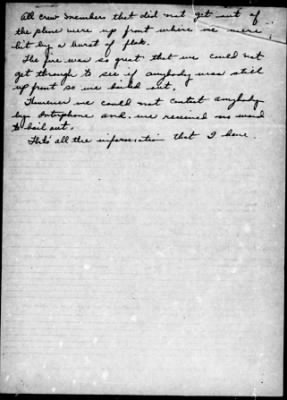 All crew members that did not get out of
the plane were up front where we were
hit by a burst of flak.
The fire was so great that we could not
get through to see if anybody was still
up front so we bailed out.
However we could not contact anybody
by interphone and we received no word
to bail out.
That's all the information that I have.